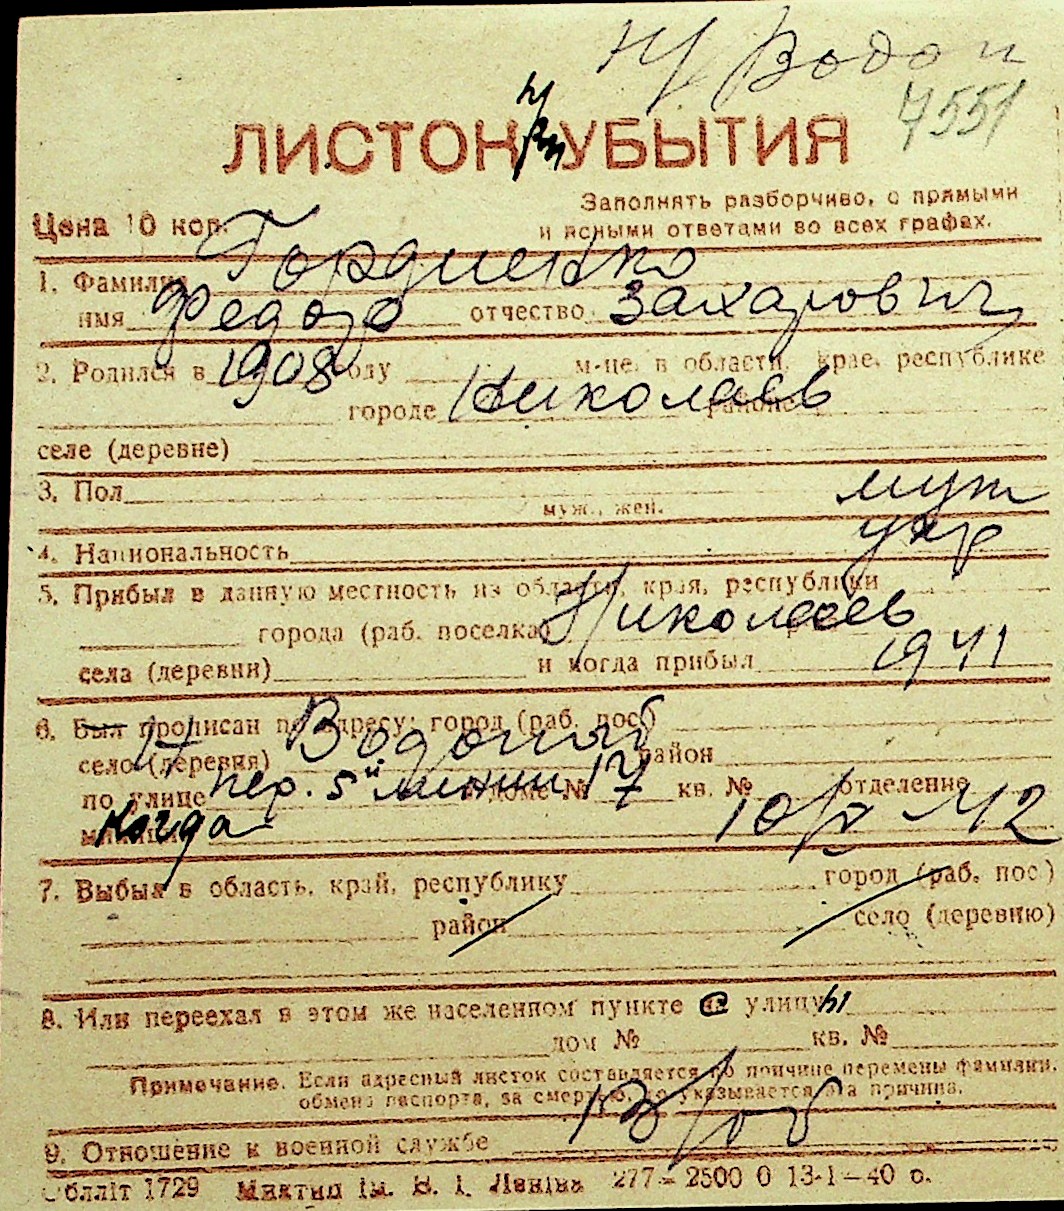 Н/Водоп
7551
ЛИСТОК УБЫТИЯ
Заполнять разборчиво, с прямыми
Цена 10 коп.
и ясными ответами во всех графах.
1. Фамилия Гордиенко
имя Федор отчество Захарович
2. Родился в 1908 году м-це, в области, крае, республике
городе Николаев районе
селе (деревне)
3. Пол муж
муж., жен.
4. Национальность укр
5. Прибыл в данную местность из области, края, республики
города (раб. поселка) Николаев
села (деревни) и когда прибыл 1941
6. Был прописан по адресу: город (раб. пос.)
село (деревня) Водопой район
по улице пер. 5й линии дом № 17 кв. № отделение
милиции Когда 10/V 42
7. Выбыл в область, край, республику город (раб. пос.)
район село (деревню)
8. Или переехал в этом же населенном пункте с улицы
дом № кв. №
Примечание. Если адресный листок составляется по причине перемены фамилии,
обмена паспорта, за смертью, то указывается эта причина.
9. Отношение к военной службе
Облліт 1729 Миктип ім. В. І. Леніна 277 – 2500 0 13-1–40 о.